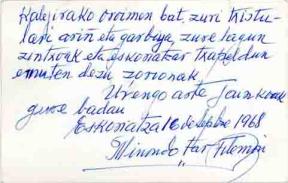 Kalejirako oroimen bat, zuri txistu-
lari ariñ eta garbiya, zure lagun
zintzoak eta eskonatzar txapeldun
emuten dezu zorionak
Urengo arte Jainkoak
gure badau
Eskoriatza 16 1968
Minondo'tar Filemon